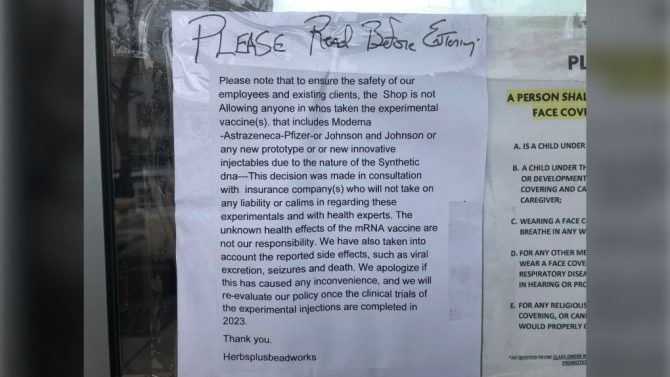 PLEASE Read Before Entering.
Please note that to ensure the safety of our
employees and existing clients, the Shop is not
Allowing anyone in whos taken the experimental
vaccine(s). that includes Moderna
-Astrazeneca-Pfizer-or Johnson and Johnson or
any new prototype or or new innovative
injectables due to the nature of the Synthetic
dna---This decision was made in consultation
with insurance company(s) who will not take on
any liability or calims in regarding these
experimentals and with health experts. The
unknown health effects of the mRNA vaccine are
not our responsibility. We have also taken into
account the reported side effects, such as viral
excretion, seizures and death. We apologize if
this has caused any inconvenience, and we will
re-evaluate our policy once the clinical trials of
the experimental injections are completed in
2023.
Thank you.
Herbsplusbeadworks
PL
A PERSON SHAL
FACE COV
A. IS A CHILD UNDER
B. A CHILD UNDER TH
OR DEVELOPMENT
COVERING AND CA
CAREGIVER;
C. WEARING A FACE C
BREATHE IN ANY W
D. FOR ANY OTHER ME
WEAR A FACE COVE
RESPIRATORY DISEA
IN HEARING OR PRO
E. FOR ANY RELIGIOUS
COVERING, OR CAN
WOULD PROPERLY C
*AS QUOTED FROM CLASS ORDER
PROMOTION